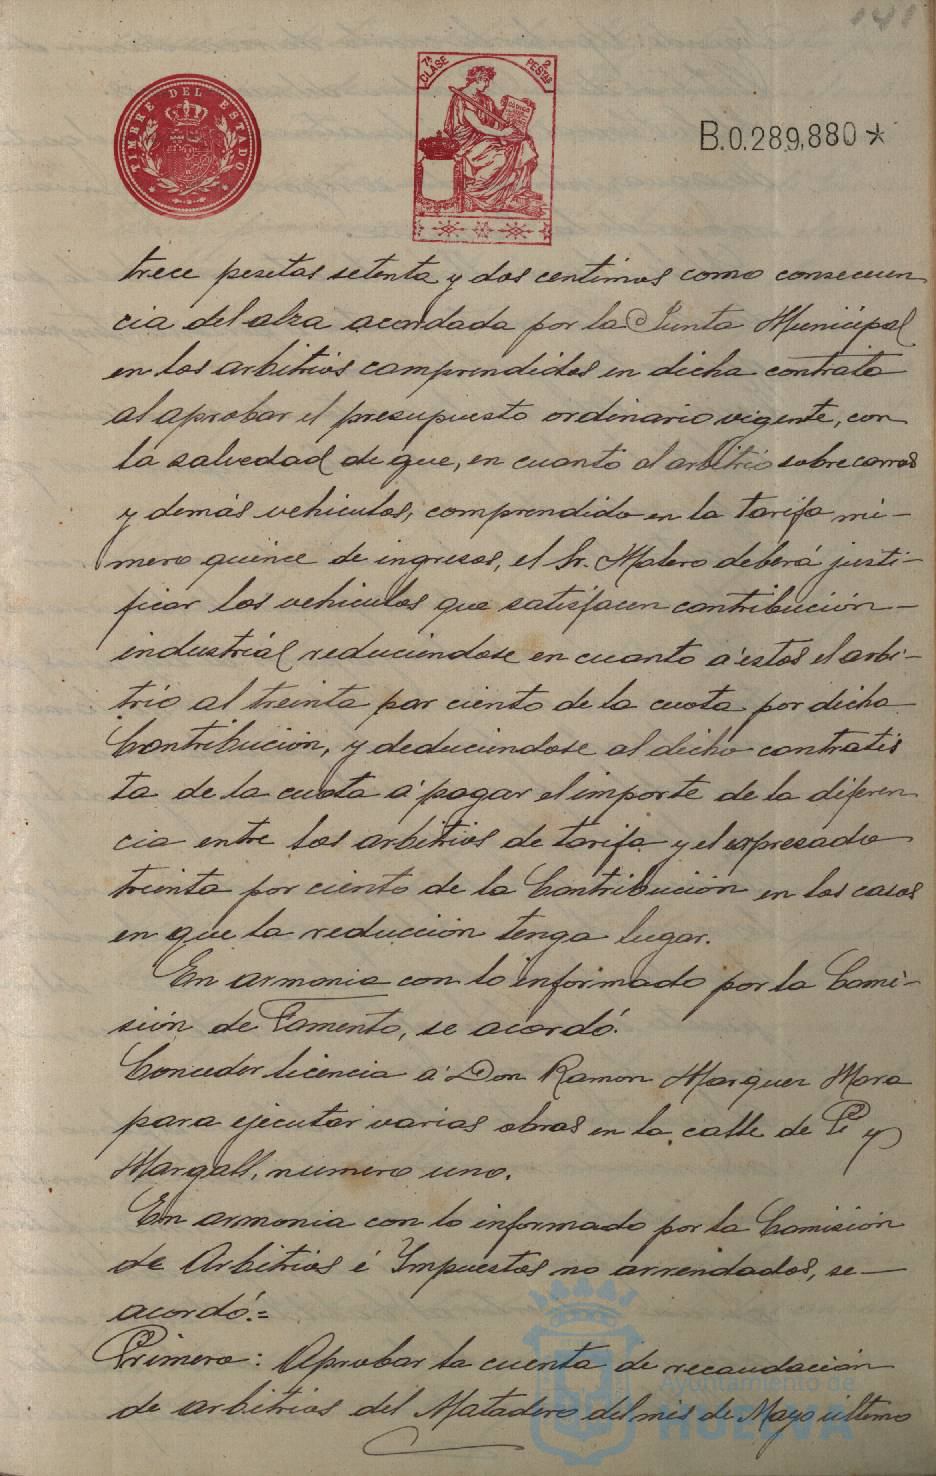 141
TIMBRE DEL ESTADO
7ª CLASE
2 PESTAS
B.0.289,880 *
trece pesetas setenta y dos centimos como consecuen
cia del alza acordada por la Junta Municipal
en los arbitrios comprendidos en dicha contrata
al aprobar el presupuesto ordinario vigente, con
la salvedad de que, en cuanto al arbitrio sobre carros
y demás vehiculos, comprendido en la tarifa nú-
mero quince de ingresos, el Sr. Matero deberá justi-
ficar los vehiculos que satisfacen contribución-
industrial reduciendose en cuanto a estos el arbi-
trio al treinta por ciento de la cuota por dicha
Contribución, y deduciendose al dicho contratis
ta de la cuota á pagar el importe de la diferen
cia entre los arbitrios de tarifa y el expresado
treinta por ciento de la Contribución en los casos
en que la reducción tenga lugar.
En armonia con lo informado por la Comi-
sión de Fomento, se acordó.
Conceder licencia á Don Ramon Marquez Mora
para ejecutar varias obras en la calle de Pi y
Margall, numero uno.
En armonia con lo informado por la Comisión
de Arbitrios é Impuestos no arrendados, se-
acordó.=
Primero: Aprobar la cuenta de recaudación
de arbitrios del Matadero del mes de Mayo ultimo
Ayuntamiento de
HUELVA